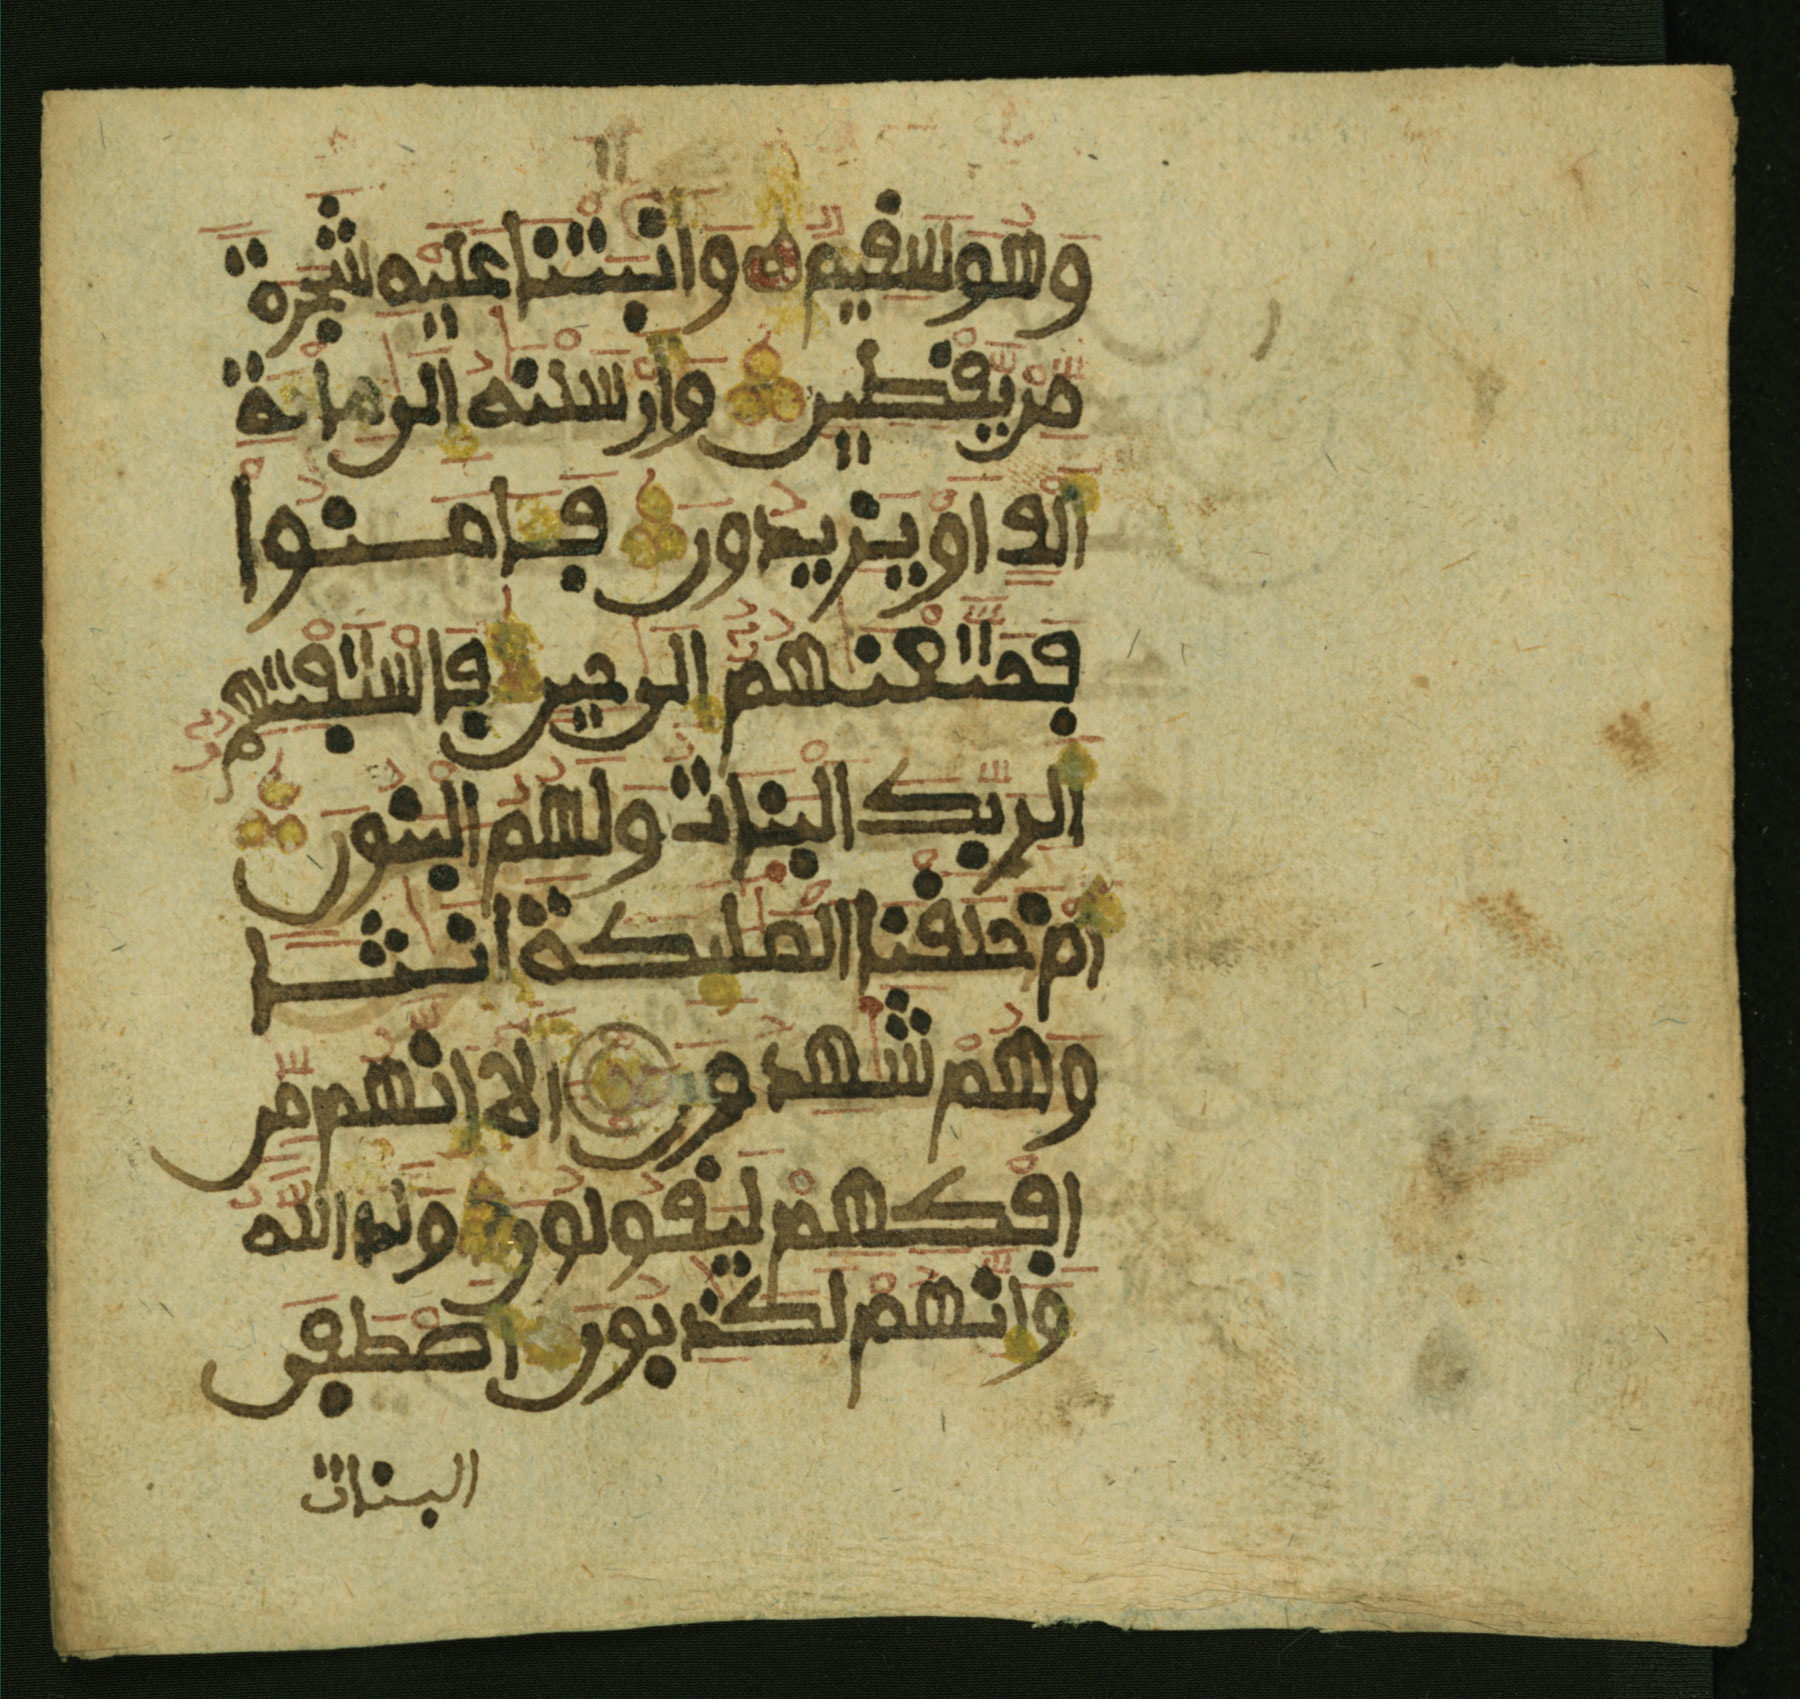 وهو سفيم وانبتنا عليه شجرة
من يفطين وارسلنه الى مائة
الف او يزيدون فامنوا
فمتعنهم الى حين فاستفتهم
الربك البنات ولهم البنون
ام خلفنا الملئكة انثا
وهم شهدون الا انهم من
افكهم ليفولون ولد الله
وانهم لكذبون اصطفى
البنات